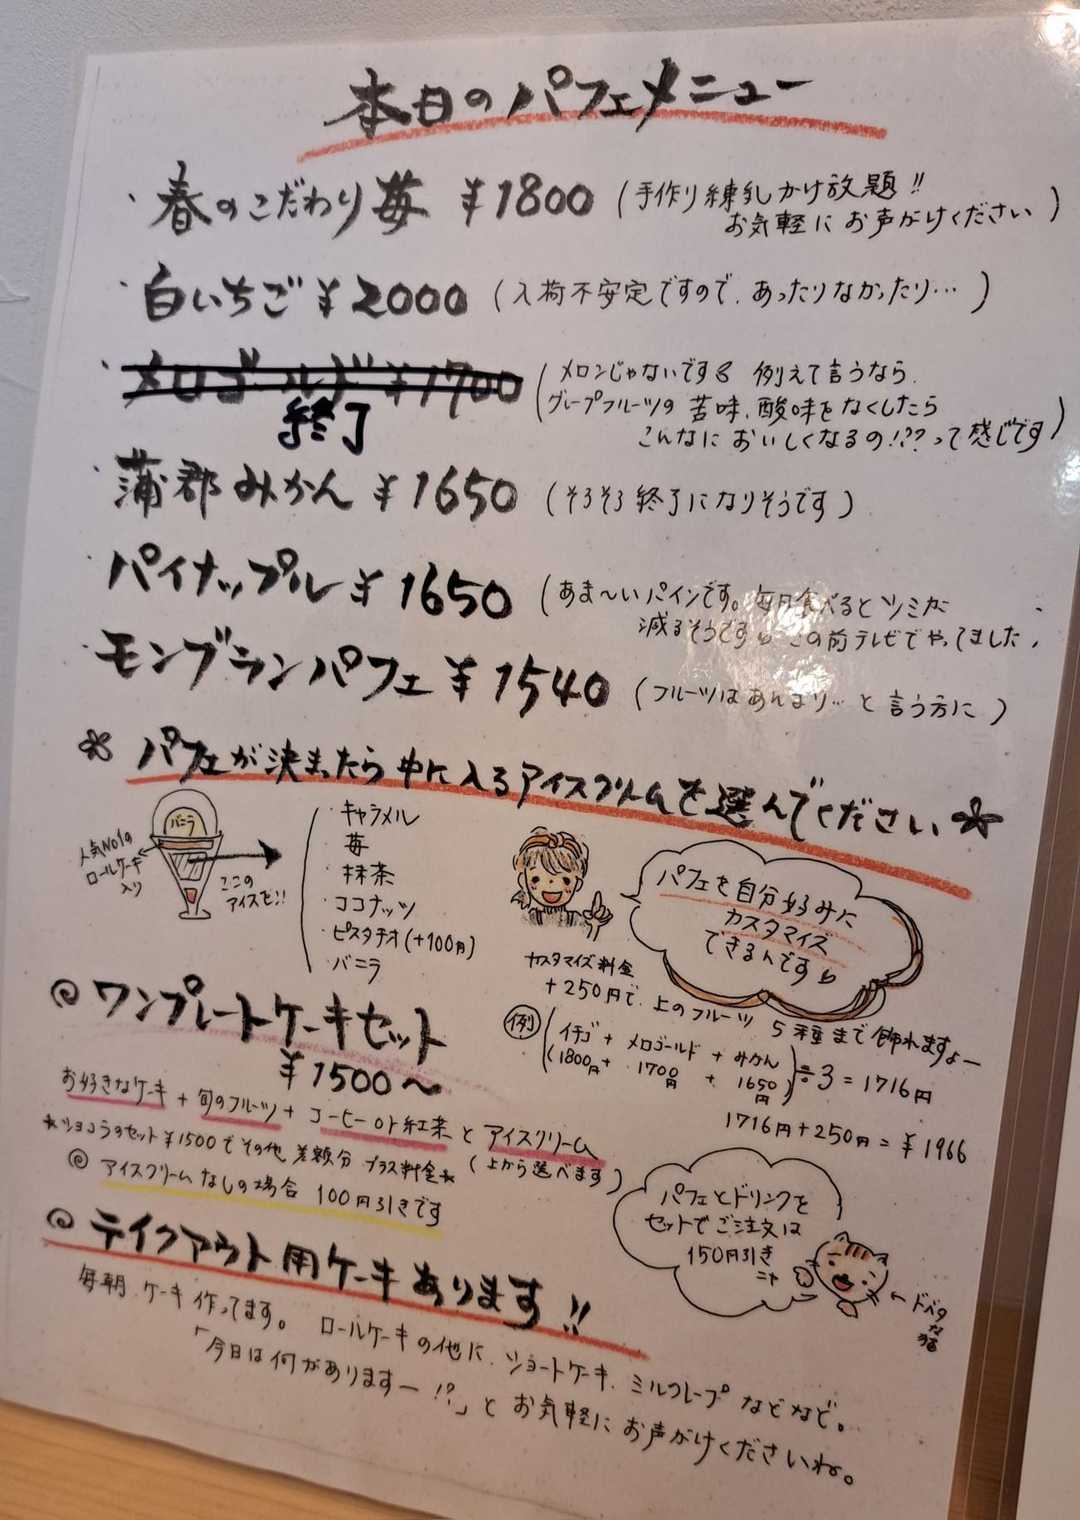 本日のパフェメニュー
・春のこだわり苺 ¥1800 (手作り練乳かけ放題!!
お気軽にお声がけください)
・白いちご ¥2000 (入荷不安定ですので、あったりなかったり…)
・メロゴールド ¥1700 (メロンじゃないです 例えて言うなら、
終了 グレープフルーツの苦味、酸味をなくしたら
こんなにおいしくなるの!??って感じです)
・蒲郡みかん ¥1650 (そろそろ終了になりそうです)
・パイナップル ¥1650 (あま〜いパインです。毎日食べるとシミが
減るそうです この前テレビでやってました)
・モンブランパフェ ¥1540 (フルーツはあんまり…と言う方に)
パフェが決まったら中に入るアイスクリームを選んでください
バニラ
人気No1の
ロールケーキ
入り
ここの
アイスを!!
・キャラメル
・苺
・抹茶
・ココナッツ
・ピスタチオ(+100円)
・バニラ
パフェを自分好みに
カスタマイズ
できるんです
カスタマイズ料金
+250円で、上のフルーツ 5種まで飾れますよー
例 (イチゴ + メロゴールド + みかん
1800円 + 1700円 + 1650円) ÷3 = 1716円
1716円+250円=¥1966
◎ワンプレートケーキセット
¥1500〜
お好きなケーキ + 旬のフルーツ + コーヒーor紅茶とアイスクリーム
(上から選べます)
*ショコラのセット¥1500でその他 差額分 プラス料金*
◎アイスクリームなしの場合 100円引きです
パフェとドリンクを
セットでご注文は
150円引き
ニャ
◎テイクアウト用ケーキあります!!
毎朝、ケーキ作ってます。 ロールケーキの他に、ショートケーキ、ミルクレープなどなど。
「今日は何がありますー!?」とお気軽にお声がけくださいね。